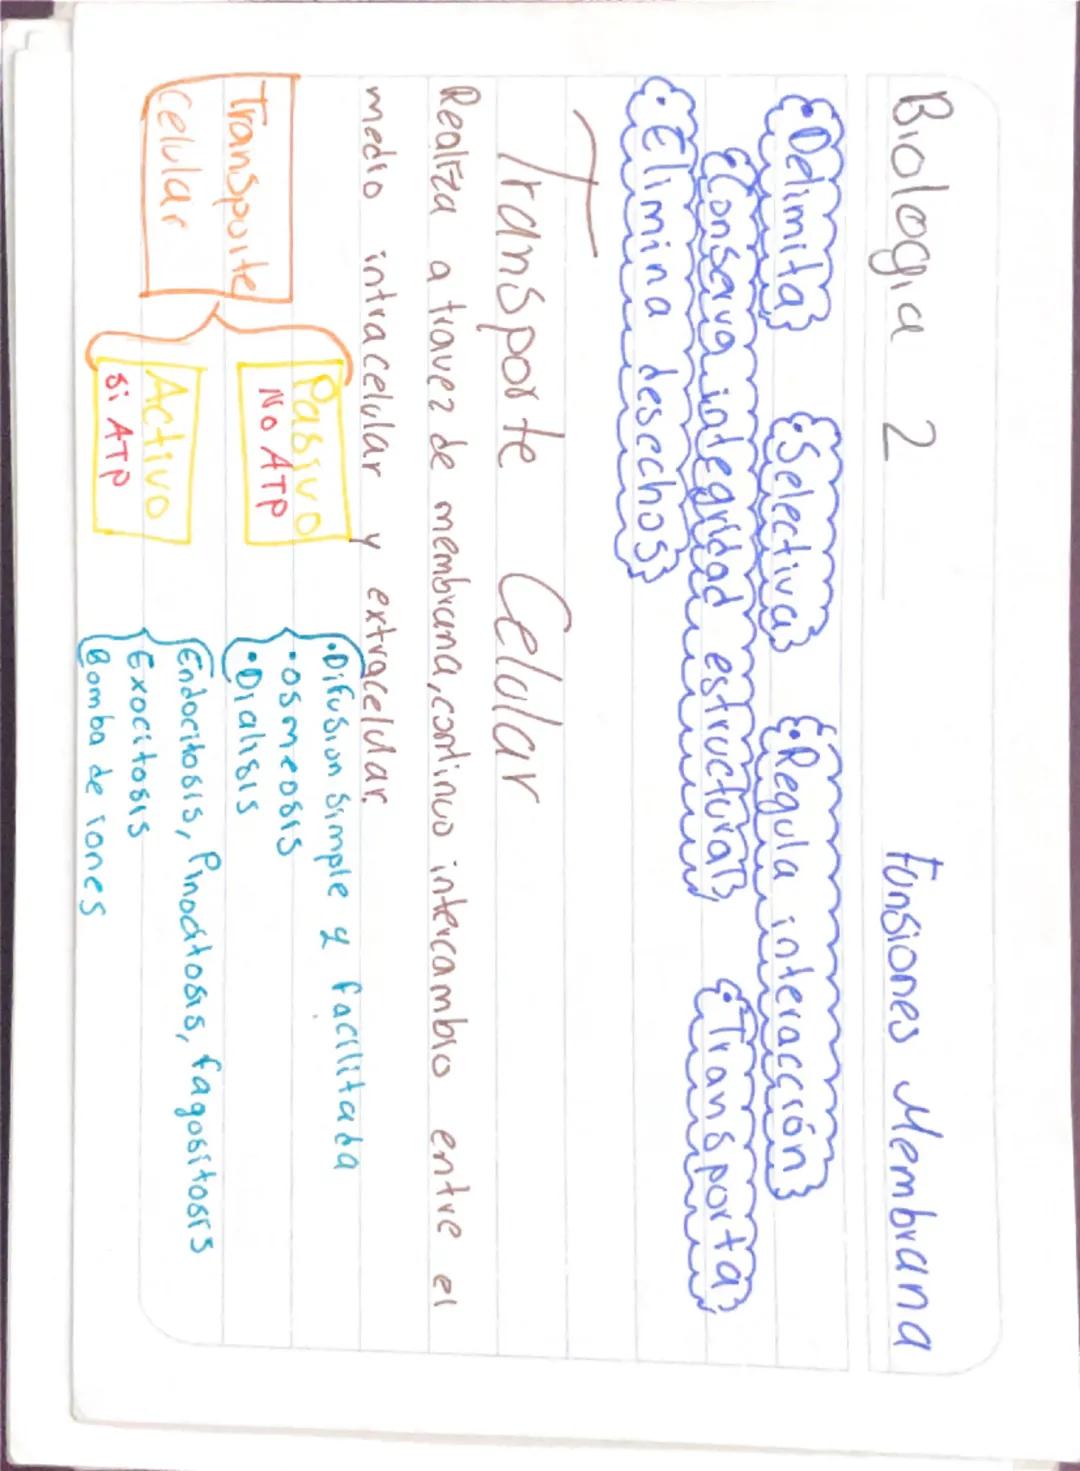 Biología 2
Funsiones Membrana
• Delimita
• Selectiva
• Regula interacción
• Consarva integridad estructural
• Transporta
• Elimina desechos
Transporte Celular
Realiza a travez de membrana, continuo intercambio entre el
medio intracelular y extracelular.
Transporte
Celular
Pasivo
No ATP
• Difusion Simple y facilitada
• osmeosis
• Dialisis
Activo
Si ATP
Endocitosis, Pinocitosis, fagositosis
Exocitosis
Bomba de iones